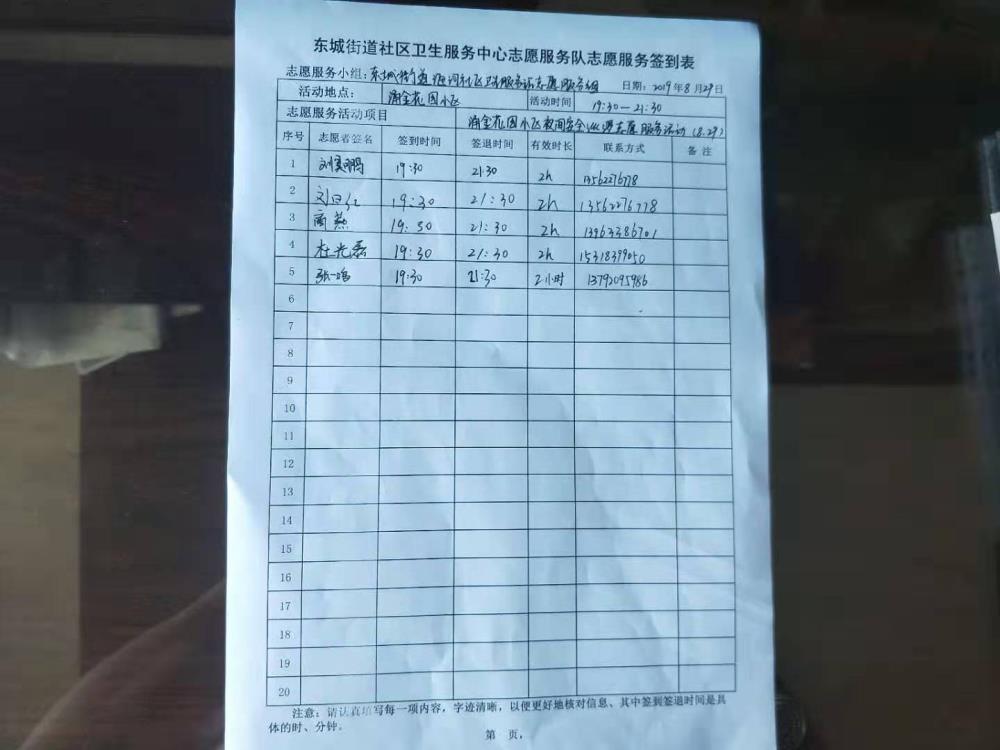 东城街道社区卫生服务中心志愿服务队志愿服务签到表
志愿服务小组：东城街道 社区卫生服务站志愿服务组 日期：2019年8月29日
活动地点： 浦金花园小区 活动时间 19:30—21:30
志愿服务活动项目 浦金花园小区夜间安全巡逻志愿服务活动(8.29)
序号 志愿者签名 签到时间 签退时间 有效时长 联系方式 备注
1 19:30 21:30 2h 13562276778
2 19:30 21:30 2h 13562276778
3 商燕 19:30 21:30 2h 13963386701
4 杜光磊 19:30 21:30 2h 15318399050
5 张一鸣 19:30 21:30 2小时 13792095986
6
7
8
9
10
11
12
13
14
15
16
17
18
19
20
注意：请认真填写每一项内容，字迹清晰，以便更好地核对信息、其中签到签退时间是具
体的时、分钟。
第 页,